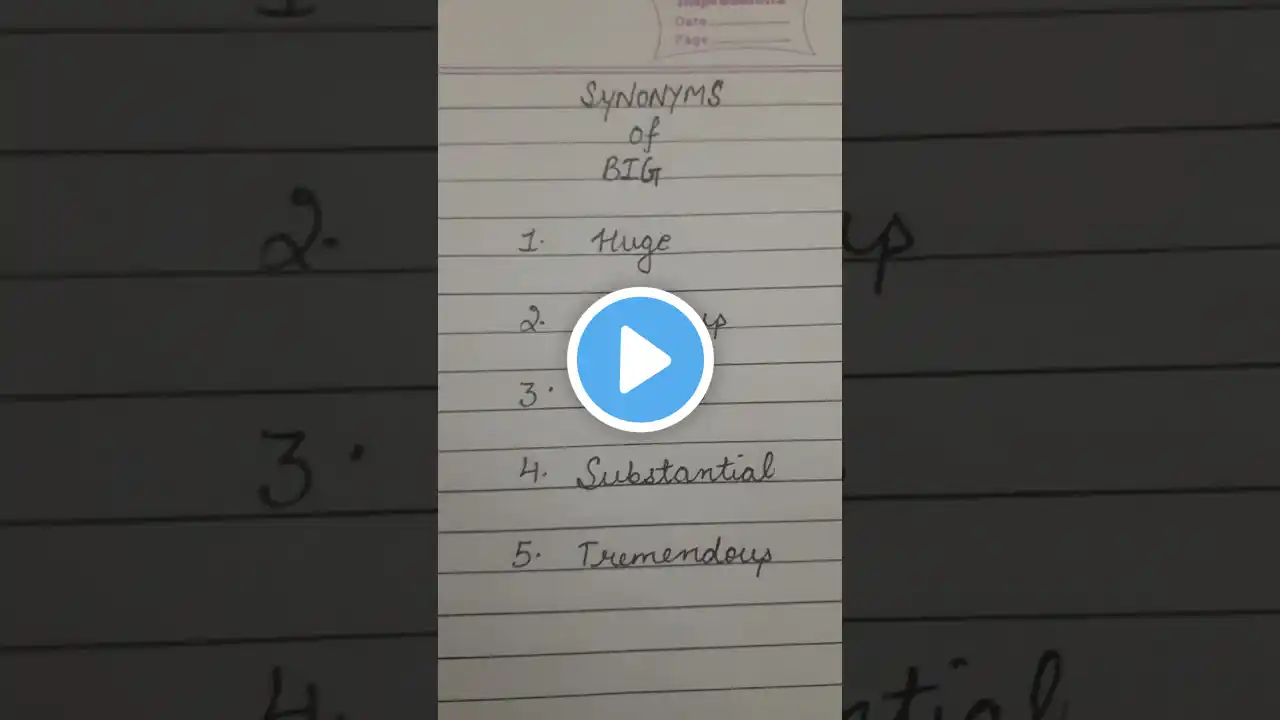 Date
Page
SYNONYMS
of
BIG
1. Huge
2.
3.
4. Substantial
5. Tremendous